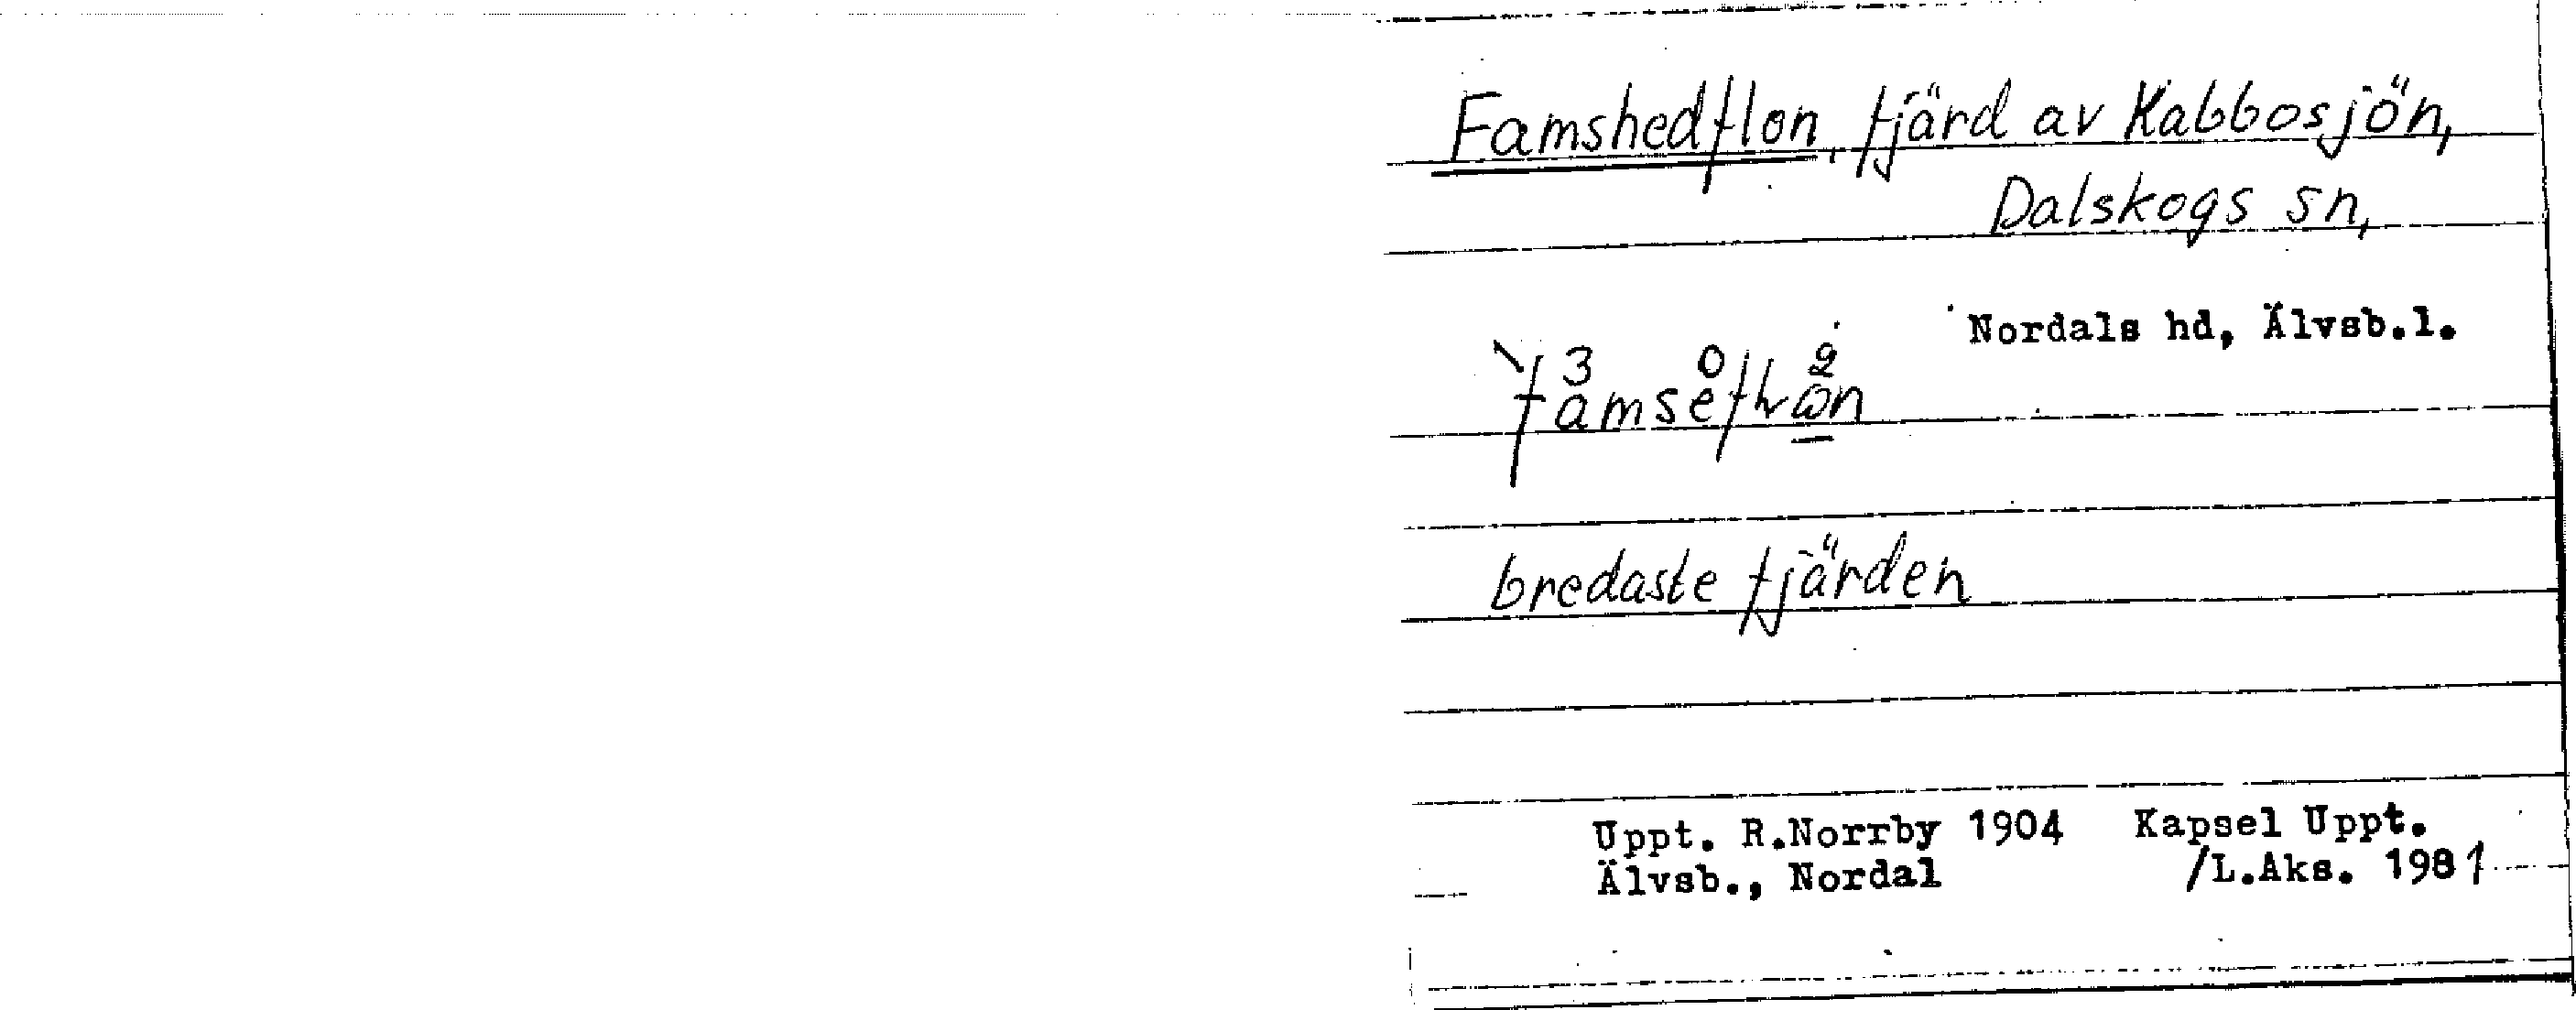 Famshedflon, fjärd av Kabbosjön,
Dalskogs sn,
Nordals hd, Älvsb.l.
bredaste fjärden
Uppt. R.Norrby 1904 Kapsel Uppt.
Älvsb., Nordal /L.Aks. 1981